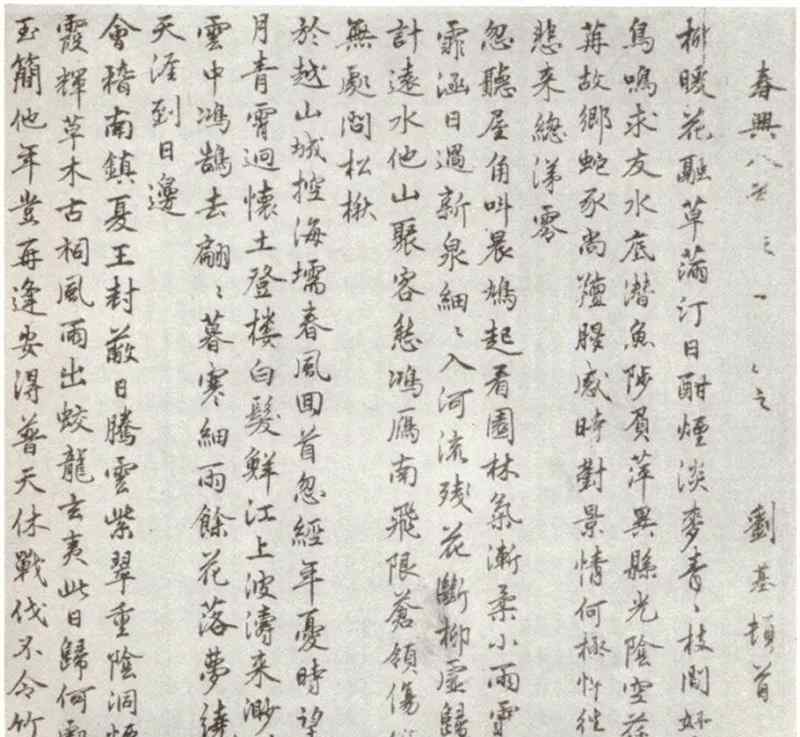 春興八 劉基頓首
柳暖花融草滿汀日酣煙淡麥青〻枝間好
鳥鳴求友水底潛魚陟負萍異縣光陰空荏
苒故鄉蛇豕尚羶腥感時對景情何極忤徃
悲来總涕零
忽聽屋角叫晨鳩起看園林氣漸柔小雨霏
霏涵日過新泉細〻入河流殘花斷柳虛歸
計遠水他山聚客愁鴻雁南飛限蒼領傷
無處問松楸
於越山城控海壖春風回首忽經年憂時望
月青霄迥懷土登樓白髮鮮江上波濤来渺
雲中鴻鵠去翩〻暮寒細雨餘花落夢繞
天涯到日邊
會稽南鎮夏王封蔽日騰雲紫翠重陰洞煙
霞輝草木古祠風雨出蛟龍玄夷此日歸何處
玉簡他年豈再逢安得普天休戰伐不令竹